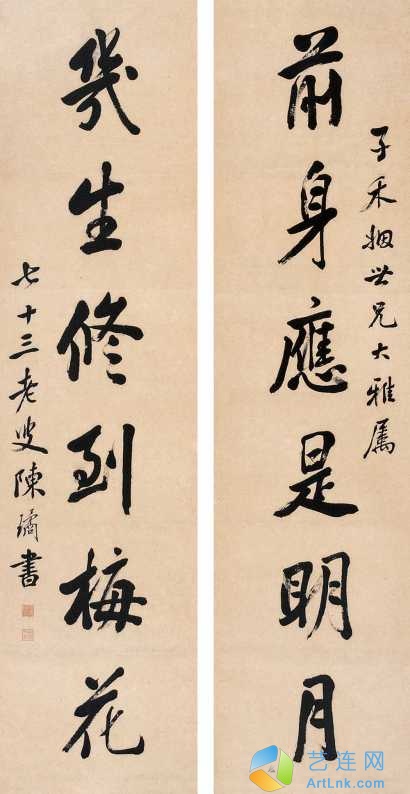 子禾姻世兄大雅属
前身應是明月
幾生修到梅花
七十三老叟陳璚書
艺连网
ArtLnk.com